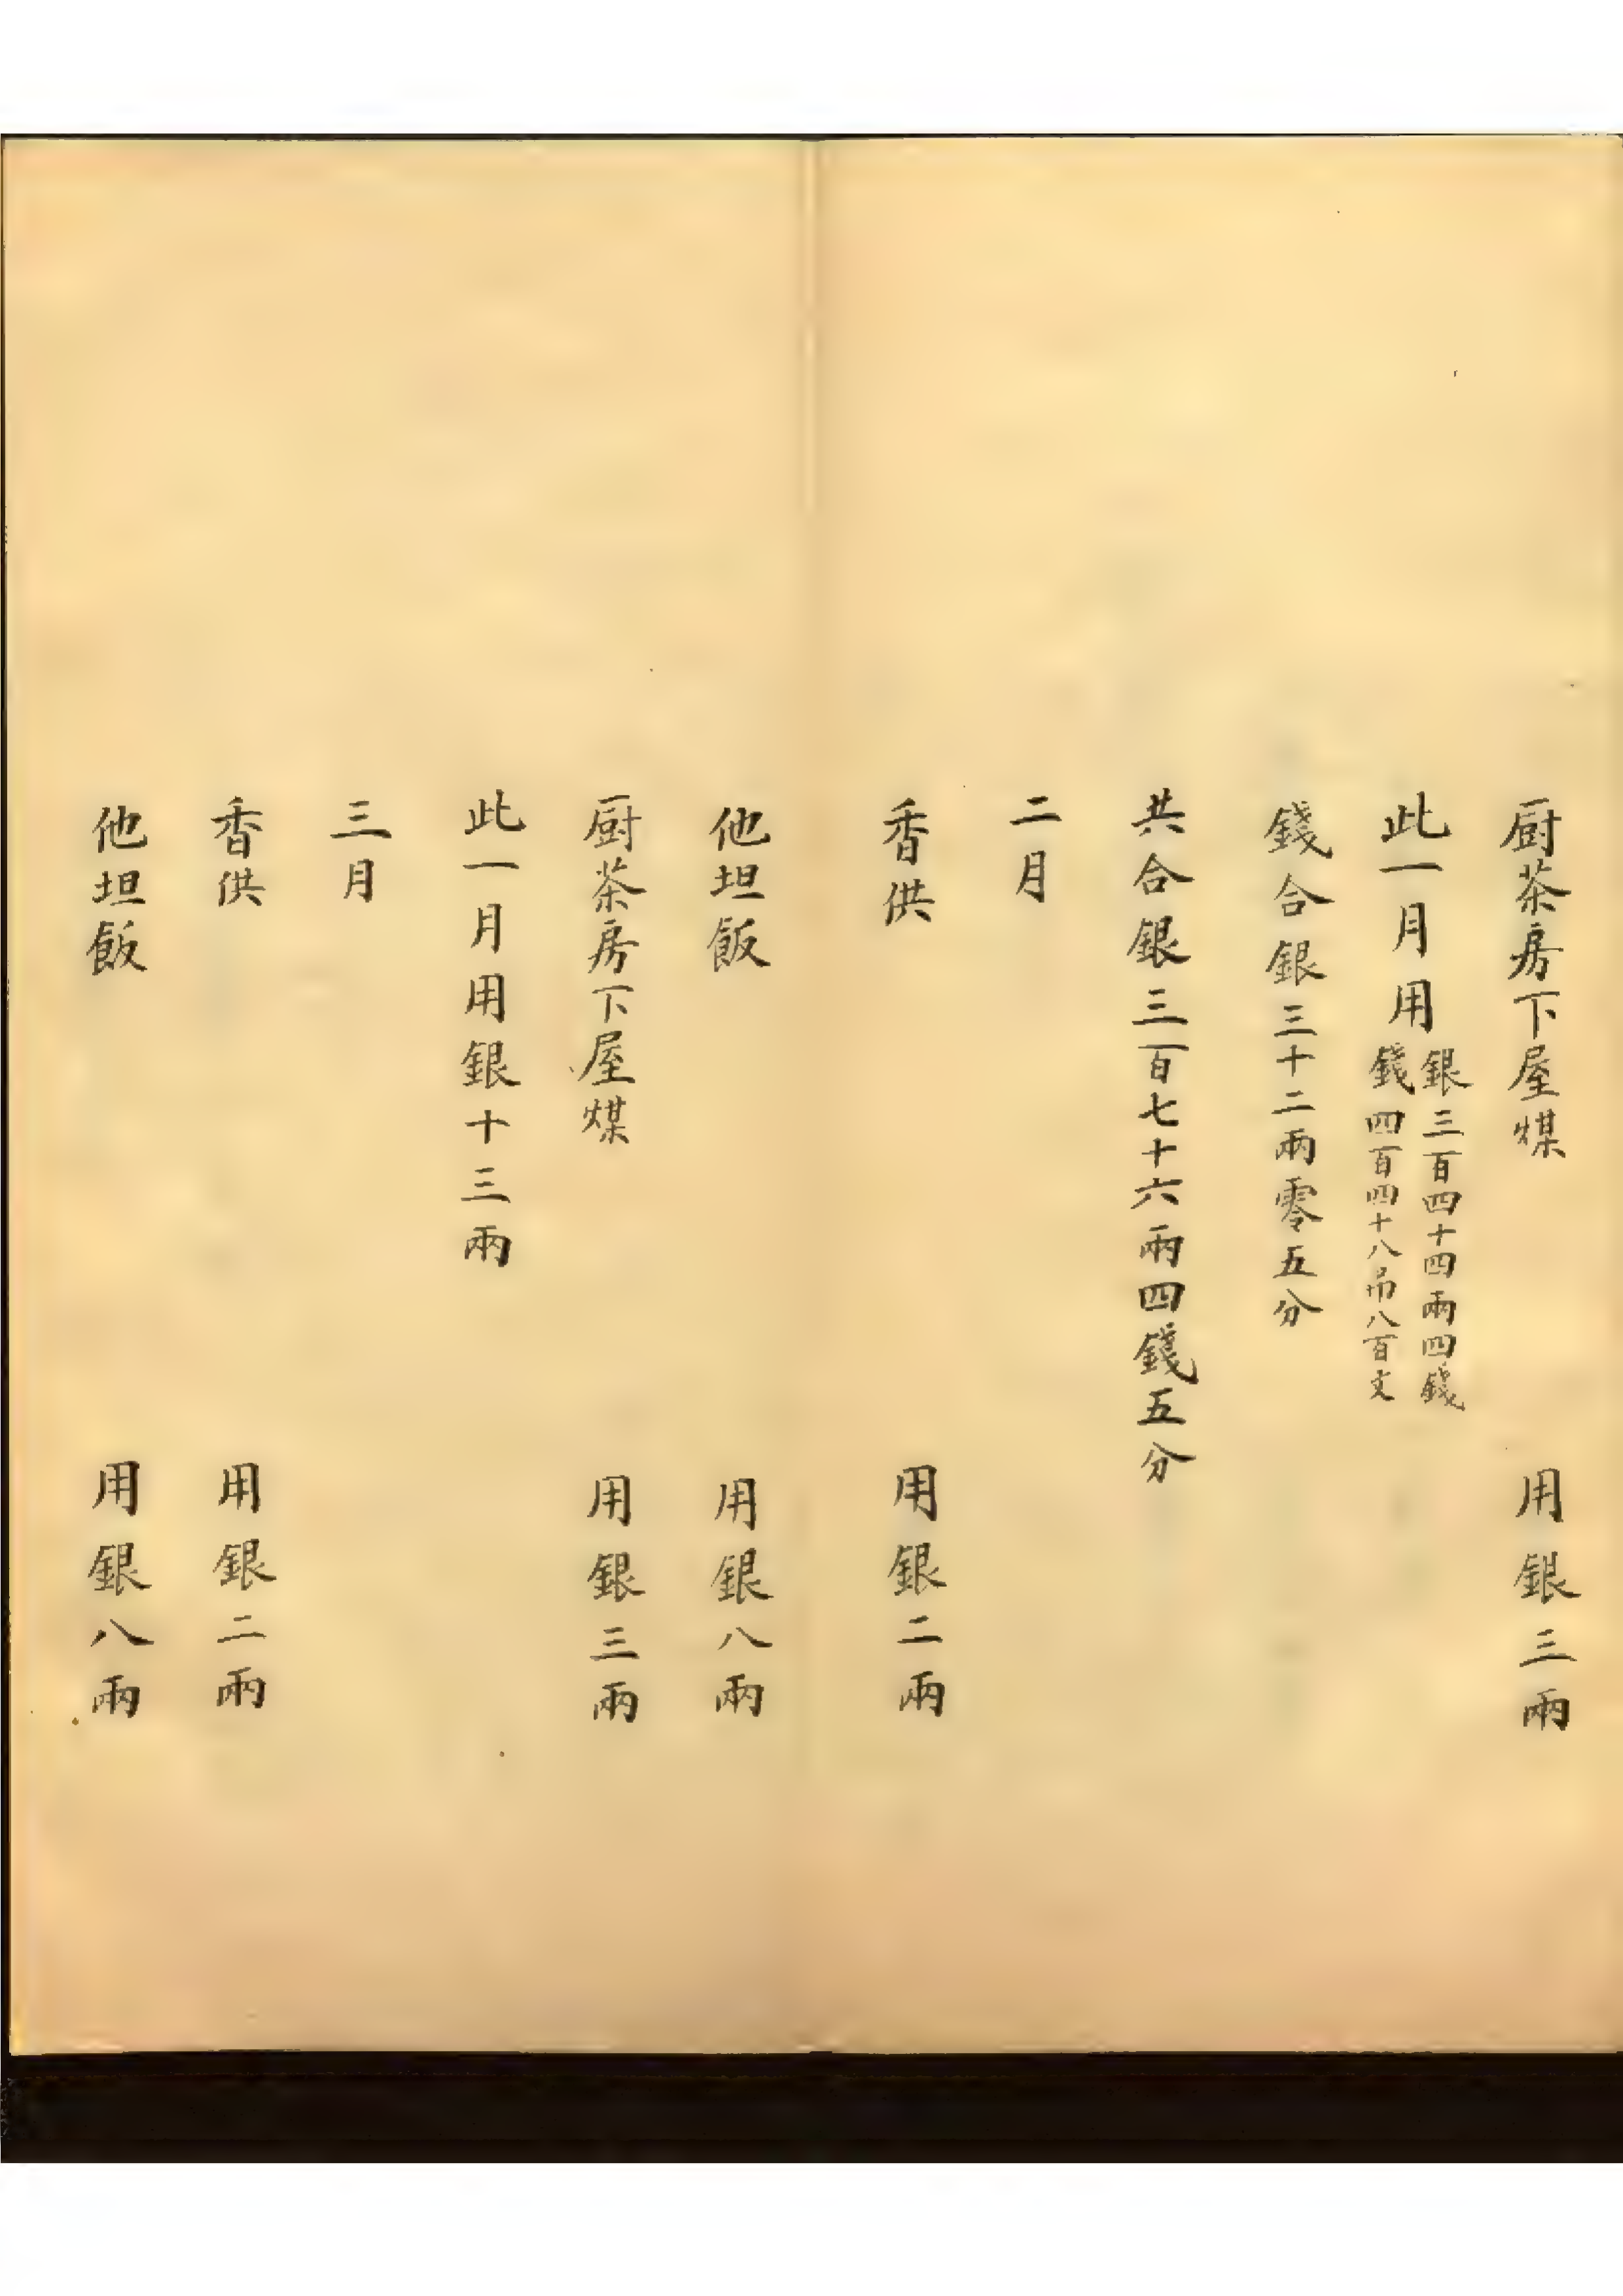 厨茶房下屋煤　用銀三兩
此一月用銀三百四十四兩四錢
錢四百四十八吊八百文
錢合銀三十二兩零五分
共合銀三百七十六兩四錢五分
二月
香供　用銀二兩
他坦飯　用銀八兩
厨茶房下屋煤　用銀三兩
此一月用銀十三兩
三月
香供　用銀二兩
他坦飯　用銀八兩